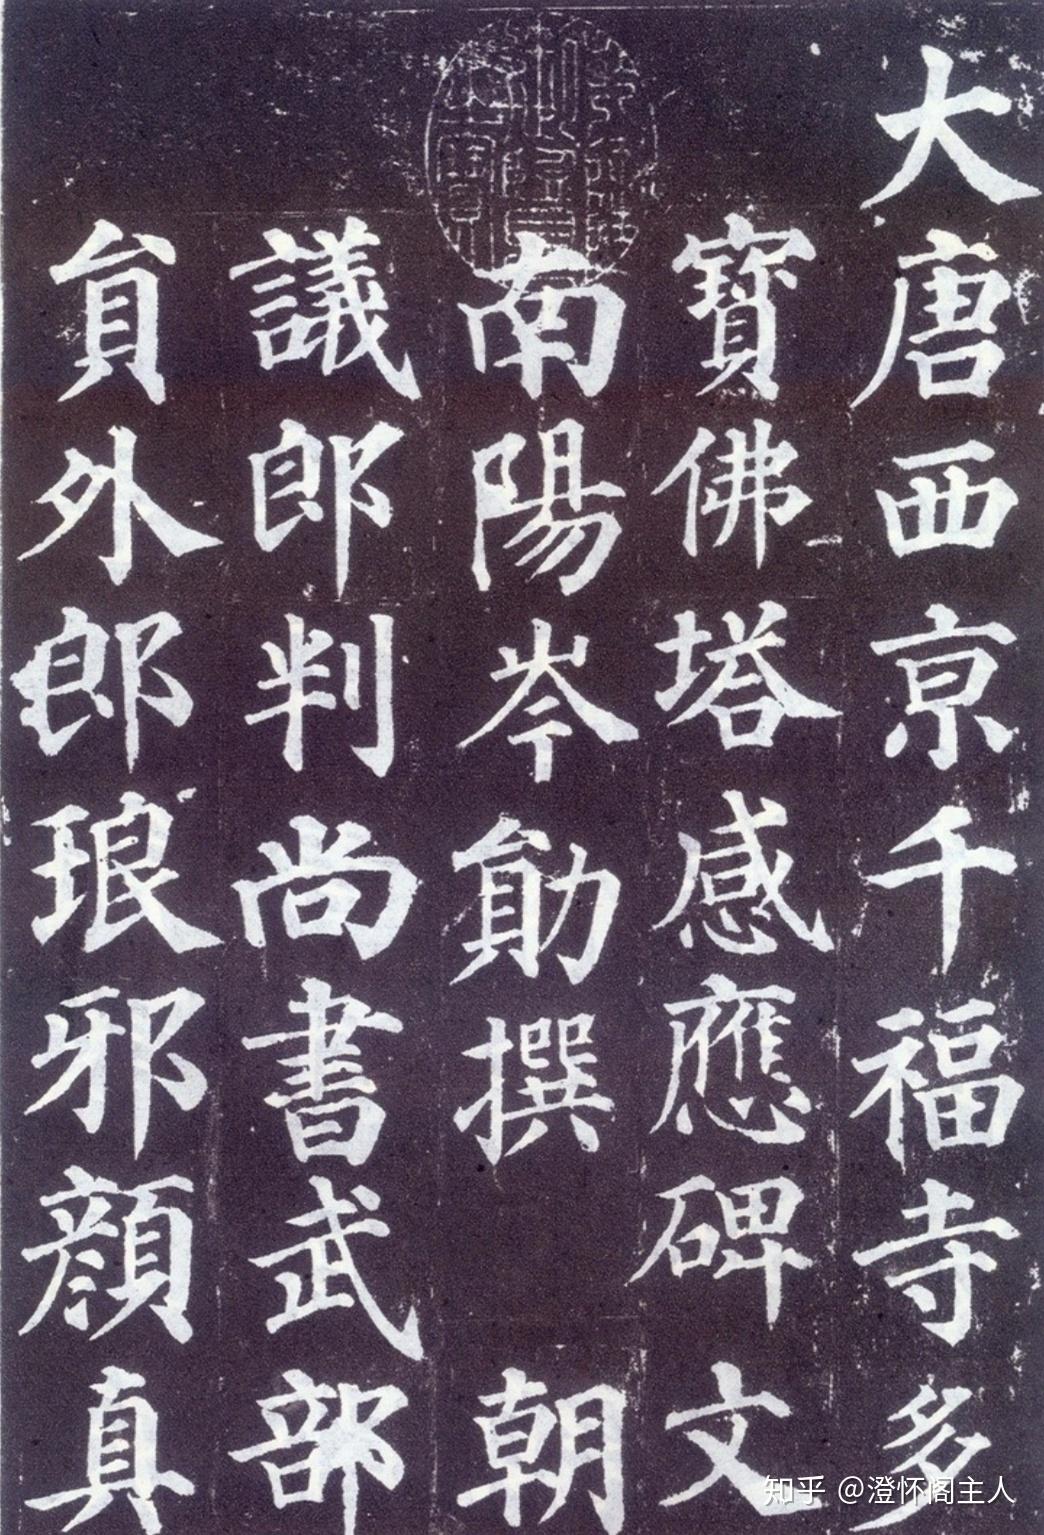 大唐西京千福寺多
寶佛塔感應碑文
南陽岑勛撰 朝
議郎判尚書武部
員外郎琅邪顏真
知乎 @澄怀阁主人